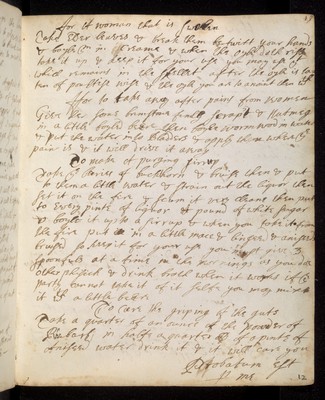 for A woman that is swollen
Take Elder leaves & break them betwixt your hands
& boyle em in creame & when the oyle doth rise
take it up & keep it for your use you may use
which remains in the skellet after the oyle is
ten of pultess wise & the oyle you are to anoint them with
ffor to take away after pains from women
Give her some brandy scrape nutmeg
in a little boyle beere then boyle wormwood in
& put the water into bladers & apply them where
pain is & it will drive it away
To make of purging sirrup
Take berries of buckhorn & bruise them & put
to them a little water & strain out the liquor then
let it on the fire & scum it very cleane then put
to every pint of liquor A pound of white sugar
& boyle it up to a sirrup & when you take it from
the fire put in a little mace & Ginger & aniseed
bruised so keep it for your use you may give 3
spoonfuls at a time in the mornings as you do
other physick & drink broth when it works if the
party cannot take it of it selfe you may mix
it with a little beere
To cure the griping of the guts
Take a quarter of an ounce of the powder of
Rubarb in halfe a quarter of a pint of
aniseed water drink it & it will cure you
Probatum est
12